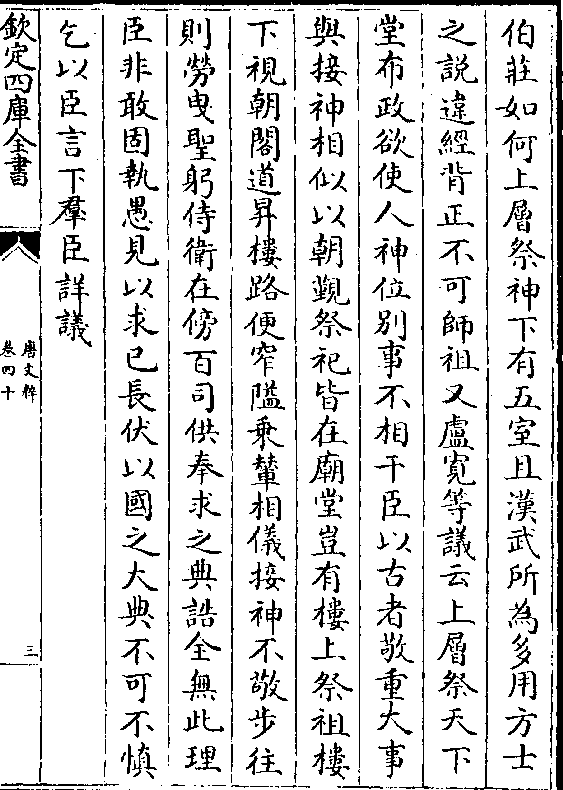 伯莊如何上層祭神下有五室且漢武所為多用方士
之説違經背正不可師祖又盧寛等議云上層祭天下
堂布政欲使人神位别事不相干臣以古者敬重大事
與接神相似以朝覲祭祀皆在廟堂豈有樓上祭祖樓
下視朝閣道昇樓路便窄隘乘輦相儀接神不敬步往
則勞曵聖躬侍衛在傍百司供奉求之典誥全無此理
臣非敢固執愚見以求已長伏以國之大典不可不慎
乞以臣言下羣臣詳議
欽定四庫全書
唐文粹
卷四十
三